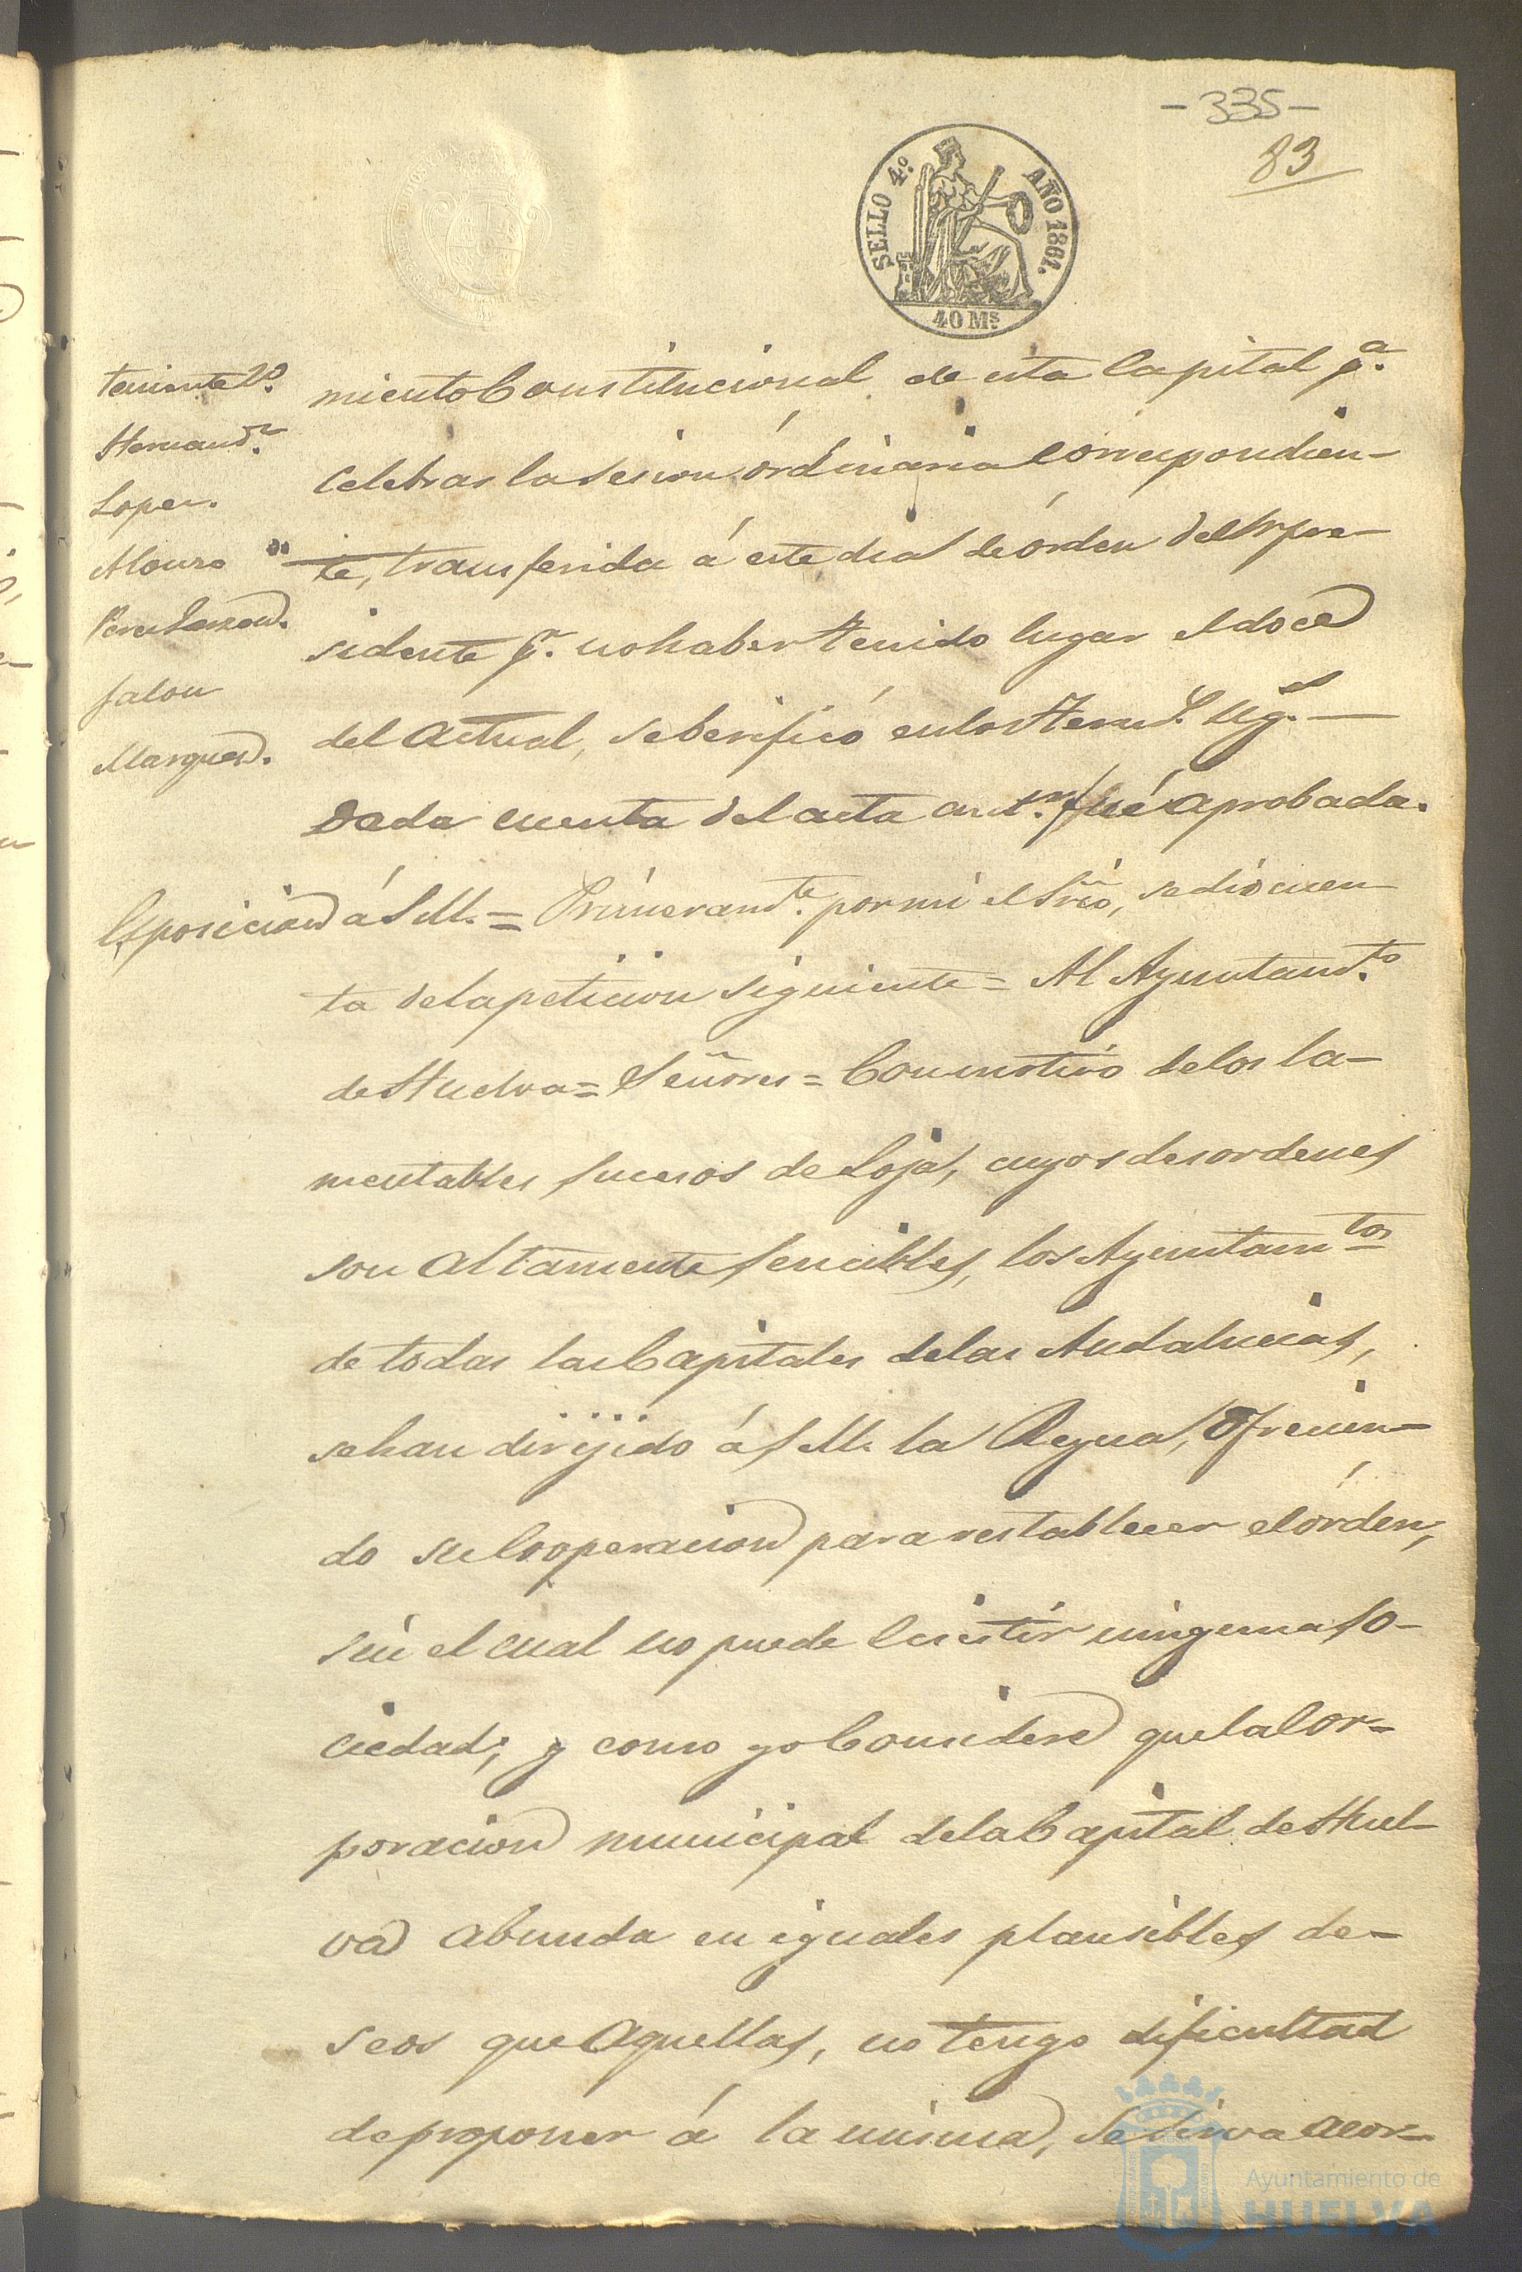 -335-
83
SELLO 4.º AÑO 1861.
40 Ms.
teniente 2º.
Hernandz.
Lopez.
Alonso
Perez
Jalon
Marquez.
miento Constitucional de esta Capital pa.
celebrar la sesion órdinaria correspondien-
te, transferida á este dia de órden del Sr pre-
sidente pr. no haber tenido lugar el doce
del actual, se berificó en los term.s sig.s
Dada cuenta del acta antr. fué aprobada.
Esposicion á S.M. = Primeramte. por mi el Srio, se dió cuen-
ta de la peticion siguiente = Al Ayuntamto.
de Huelva = Señores = Con motivo de los la-
mentables sucesos de Loja, cuyos desordenes
son altamente sencibles, los Ayuntamtos
de todas las Capitales de las Andalucias,
se han dirijido á S.M. la Reyna, ofrecien-
do su Cooperacion para restablecer el órden,
sin el cual no puede Ecsistir ninguna so-
ciedad; y como yo Considere que la Cor-
poracion municipal de la Capital de Huel-
va abunda en iguales plausibles de-
seos que aquellas, no tengo dificultad
de proponer á la misma, se sirva acor-
Ayuntamiento de
HUELVA